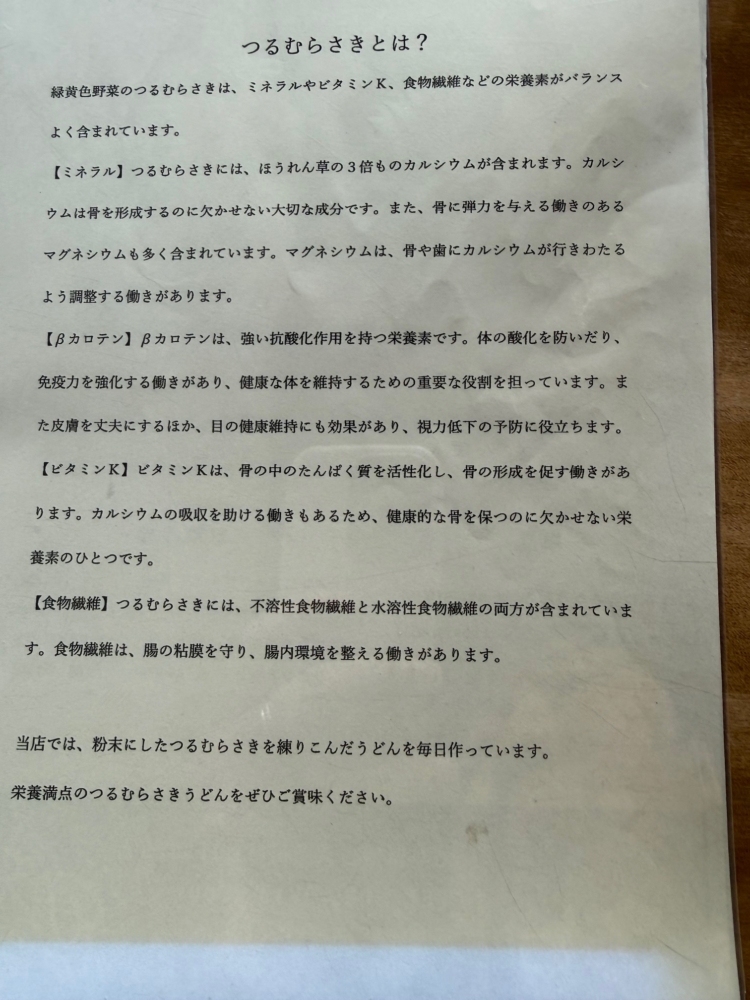 つるむらさきとは？
緑黄色野菜のつるむらさきは、ミネラルやビタミンＫ、食物繊維などの栄養素がバランス
よく含まれています。
【ミネラル】つるむらさきには、ほうれん草の３倍ものカルシウムが含まれます。カルシ
ウムは骨を形成するのに欠かせない大切な成分です。また、骨に弾力を与える働きのある
マグネシウムも多く含まれています。マグネシウムは、骨や歯にカルシウムが行きわたる
よう調整する働きがあります。
【βカロテン】βカロテンは、強い抗酸化作用を持つ栄養素です。体の酸化を防いだり、
免疫力を強化する働きがあり、健康な体を維持するための重要な役割を担っています。ま
た皮膚を丈夫にするほか、目の健康維持にも効果があり、視力低下の予防に役立ちます。
【ビタミンＫ】ビタミンＫは、骨の中のたんぱく質を活性化し、骨の形成を促す働きがあ
ります。カルシウムの吸収を助ける働きもあるため、健康的な骨を保つのに欠かせない栄
養素のひとつです。
【食物繊維】つるむらさきには、不溶性食物繊維と水溶性食物繊維の両方が含まれていま
す。食物繊維は、腸の粘膜を守り、腸内環境を整える働きがあります。
当店では、粉末にしたつるむらさきを練りこんだうどんを毎日作っています。
栄養満点のつるむらさきうどんをぜひご賞味ください。